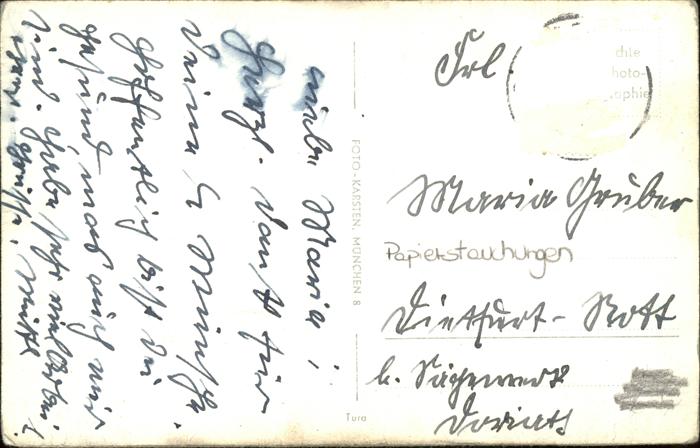 Liebe Maria!
Herzl. Dank für
Deine l. Wünsche.
Hoffentlich bist Du
gesund, was auch wir
sind. Habe sehr viel Arbeit.
Herzl. Grüsse,
Frl.
chte
hoto-
aphie
Maria Gruber
Papierstauchungen
Dietfurt - Rott
b. Sägewerk
FOTO-KARSTEN, MÜNCHEN 8
Tura